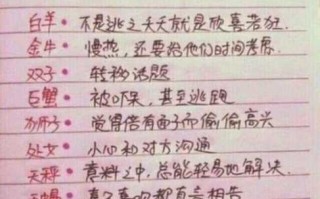 白羊• 不是逃之夭夭就是欣喜若狂.
金牛• 慢热,还要给他们时间考虑.
双子• 转移话题
巨蟹• 被吓呆,甚至逃跑
狮子• 觉得倍有面子而偷偷高兴
处女• 小心和对方沟通
天秤• 意料之中,总能轻易地解决.